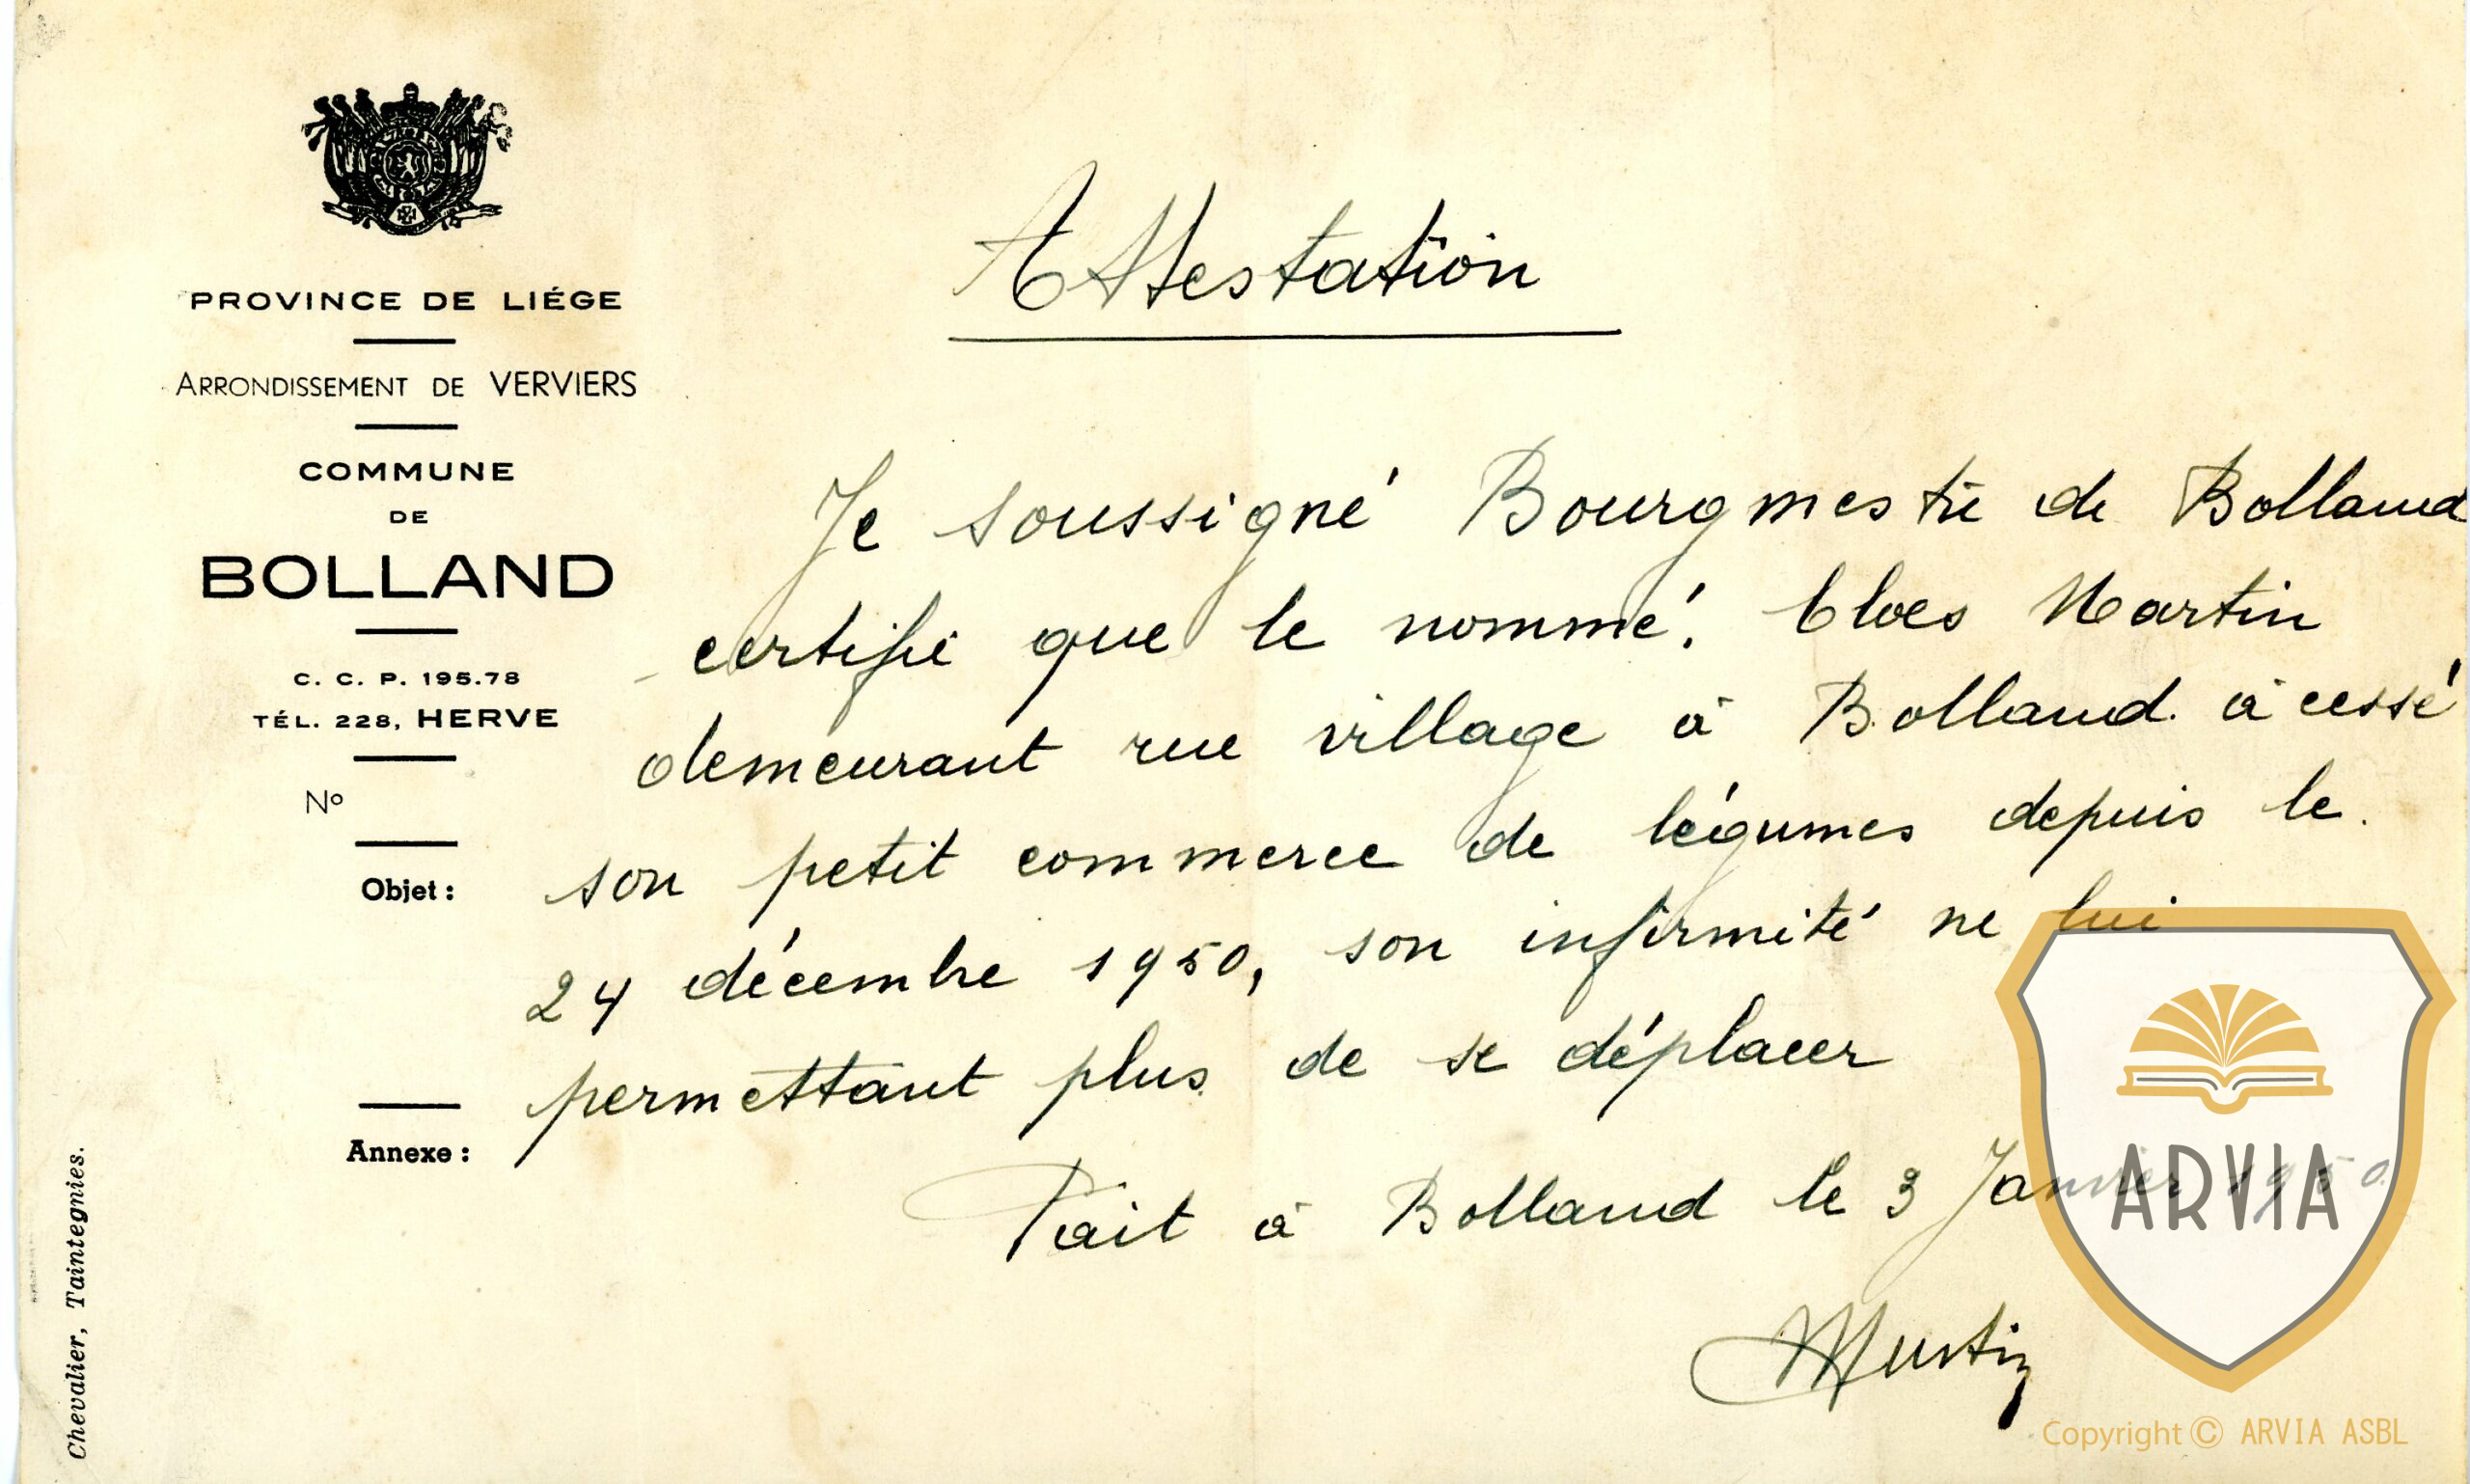 PROVINCE DE LIÉGE
ARRONDISSEMENT DE VERVIERS
COMMUNE
DE
BOLLAND
C. C. P. 195.78
TÉL. 228, HERVE
Nº
Objet :
Annexe :
Chevalier, Taintegnies.
Attestation
Je soussigné Bourgmestre de Bolland
certifie que le nommé. Cloes Martin
demeurant rue village à Bolland. à cessé
son petit commerce de légumes depuis le.
24 décembre 1950, son infirmité ne lui
permettant plus de se déplacer
Fait à Bolland le 3 Janvier 1950.
Mustin
ARVIA
Copyright © ARVIA ASBL